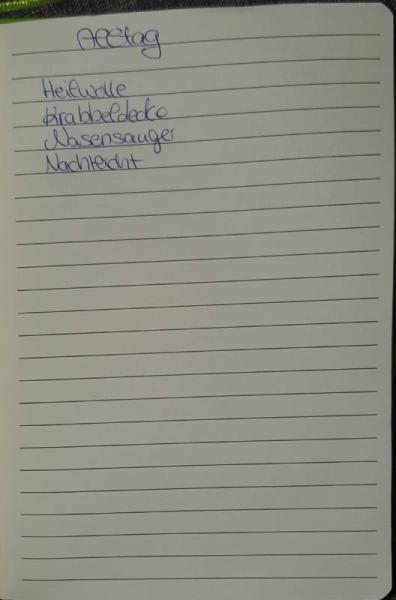 Alltag
Heilwolle
Krabbeldecke
Nasensauger
Nachtlicht